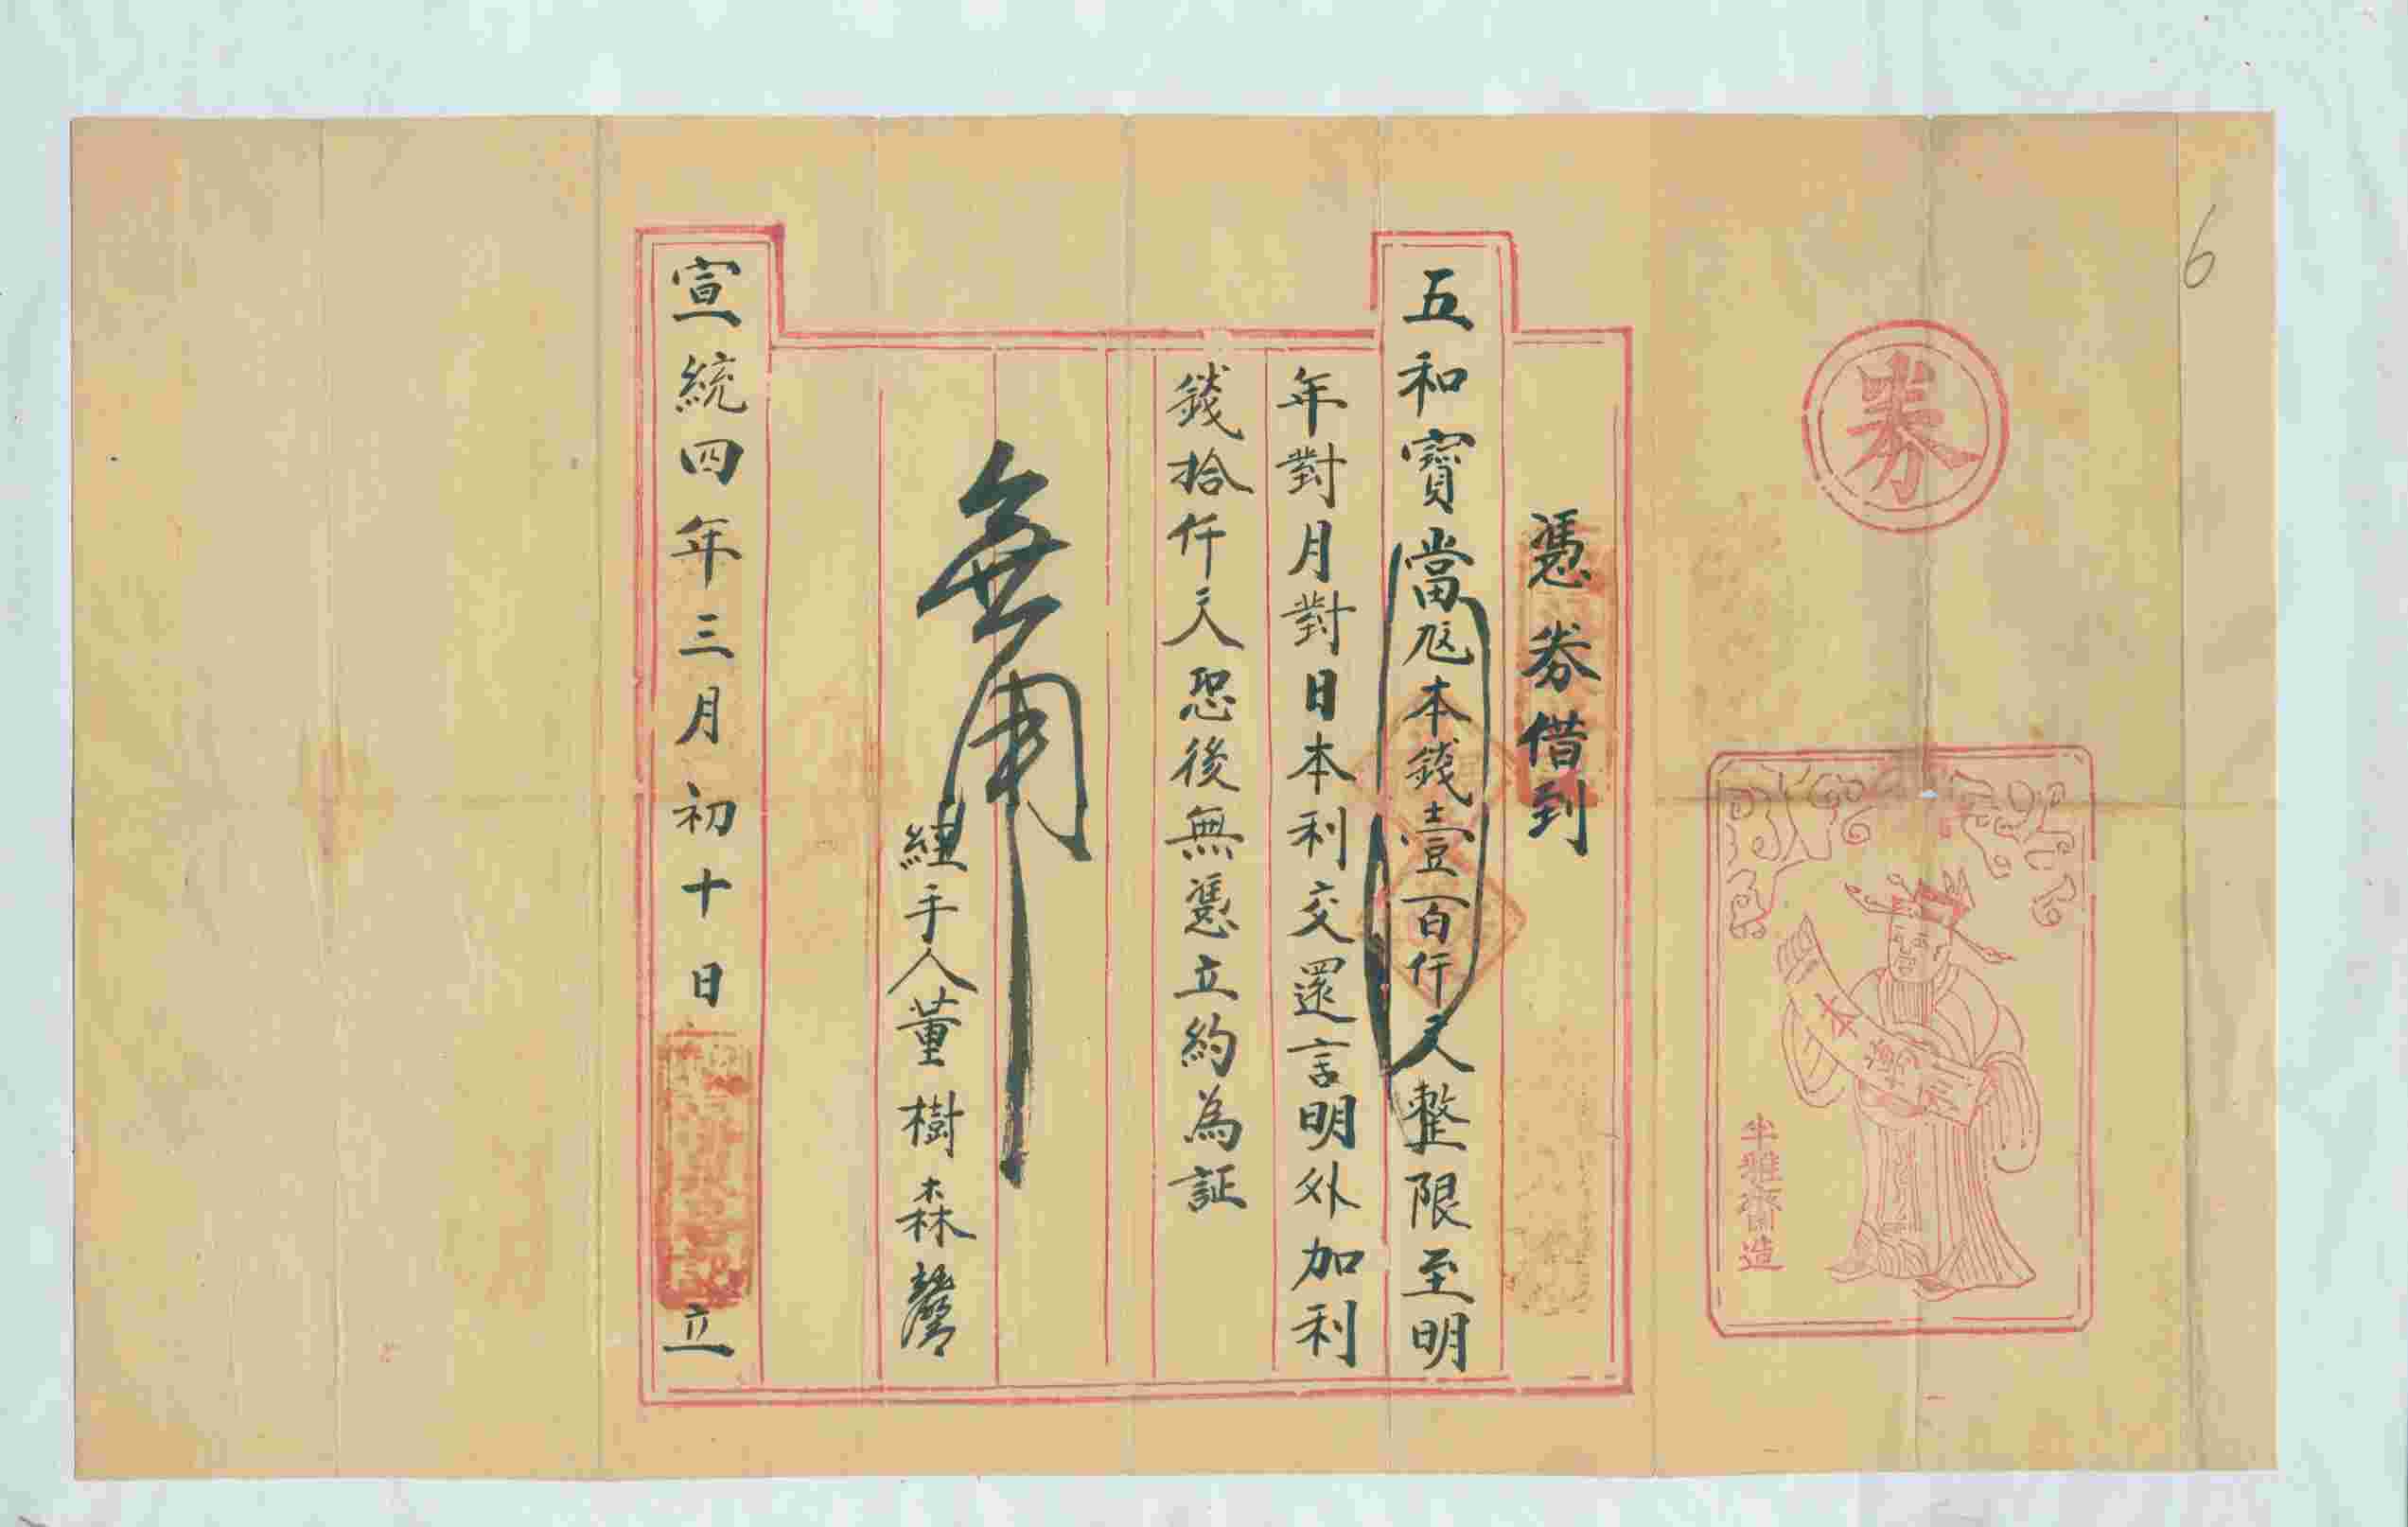 6
券
一本萬利
半雅齋造
憑券借到
五和寶當
本錢壹百仟文整限至明
年對月對日本利交還言明外加利
錢拾仟文恐後無憑立約為証
無用
經手人董樹森
宣統四年三月初十日
立